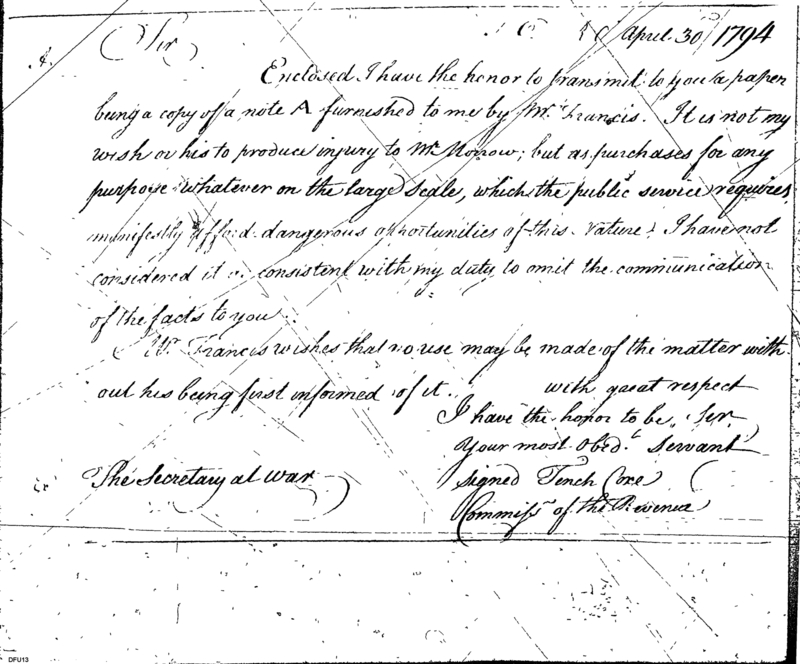 Sir April 30 1794
Enclosed I have the honor to transmit to you a paper
being a copy of a note A furnished to me by Mr. Francis. It is not my
wish or his to produce injury to Mr Morrow; but as purchases for any
purpose whatever on the large scale, which the public service requires,
manifestly afford dangerous opportunities of this nature, I have not
considered it as consistent with my duty to omit the communication
of the facts to you.
Mr. Francis wishes that no use may be made of the matter with-
out his being first informed of it. with great respect
I have the honor to be, Sir,
Your most Obedt. Servant
The Secretary at War signed Tench Coxe
Commissr of the Revenue
DFU13